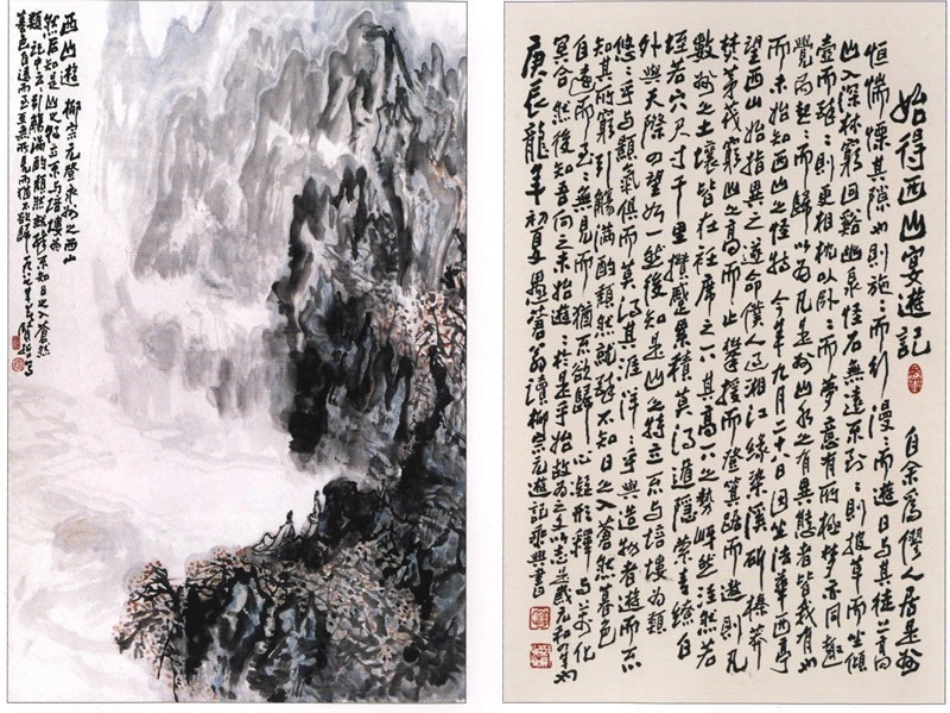 西山遊 柳宗元登永州之西山
然后知是山之特立不与培塿为
類 記中云引觴滿酌頹然就醉不知日之入蒼然
暮色自遠而至至無所見而猶不欲歸 一九八七年
始得西山宴遊記
自余為僇人居是州
恒惴慄其隙也則施〻而行漫〻而遊日与其徒上高
山入深林窮回谿幽泉怪石無遠不到〻則披草而坐傾
壺而醉〻則更相枕以卧〻而夢意有所極夢亦同趣
覺而起〻而歸以為凡是州山水之有異態者皆我有也
而未始知西山之怪特 今年九月二十八日因坐法華西亭
望西山始指異之遂命僕人過湘江緣染溪斫榛莽
焚茅茷窮山之高而止攀援而登箕踞而遨則凡
數州之土壤皆在衽席之下其高下之勢岈然洼然若
垤若穴尺寸千里攢蹙累積莫得遁隱縈青繚白
外與天際四望如一然後知是山之特立不与培塿為類
悠〻乎与顥氣俱而莫得其涯洋〻乎與造物者遊而不
知其所窮引觴滿酌頹然就醉不知日之入蒼然暮色
自遠而至〻無所見而猶不欲歸心凝形釋与萬化
冥合然後知吾向之未始遊〻於是乎始故為之文以志是歲元和四年也
庚辰龍年初夏愚蒼翁讀柳宗元遊記乘興書